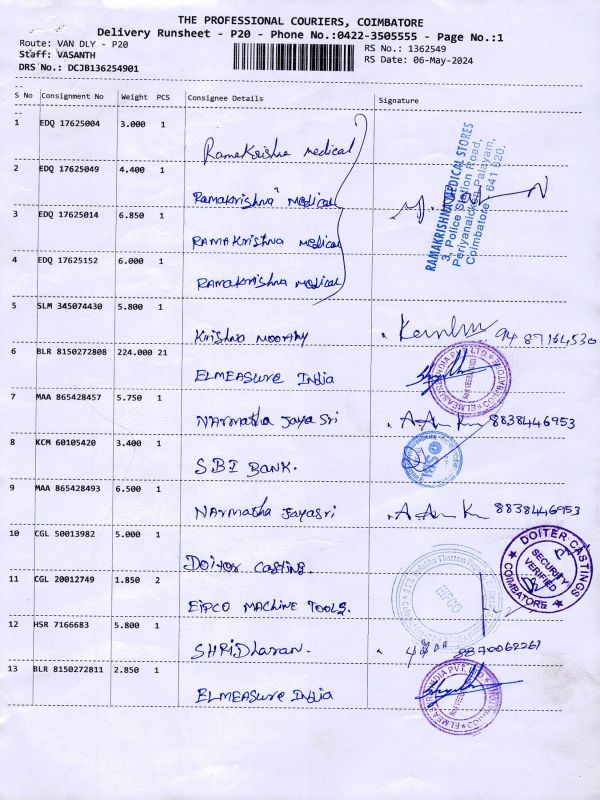 THE PROFESSIONAL COURIERS, COIMBATORE
Delivery Runsheet - P20 - Phone No.:0422-3505555 - Page No.:1
Route: VAN DLY - P20
RS No.: 1362549
Staff: VASANTH
RS Date: 06-May-2024
DRS No.: DCJB136254901
S No Consignment No Weight PCS Consignee Details Signature
1 EDQ 17625004 3.000 1
Ramakrishna medical
2 EDQ 17625049 4.400 1
Ramakrishna medical
3 EDQ 17625014 6.850 1
RAMAKrishna medical
4 EDQ 17625152 6.000 1
Ramakrishna medical
RAMAKRISHNA MEDICAL STORES
3, Police Station Road,
Periyanaicken Palayam,
Coimbatore - 641 020.
5 SLM 345074430 5.800 1
Krishna moorthy 94 87164530
6 BLR 8150272808 224.000 21
ELMEASURE India
7 MAA 865428457 5.750 1
NArmatha Jaya Sri 8838446953
8 KCM 60105420 3.400 1
SBI BANK.
9 MAA 865428493 6.500 1
NArmatha Jayasri 8838446953
10 CGL 50013982 5.000 1
Doitor Casting.
DOITER CASTINGS
SECURITY VERIFIED
COIMBATORE
11 CGL 20012749 1.850 2
EIPCO MACHINE TOOLS.
EIPCO
12 HSR 7166683 5.800 1
SHRIDharan. 9870062261
13 BLR 8150272811 2.850 1
ELMEASURE India